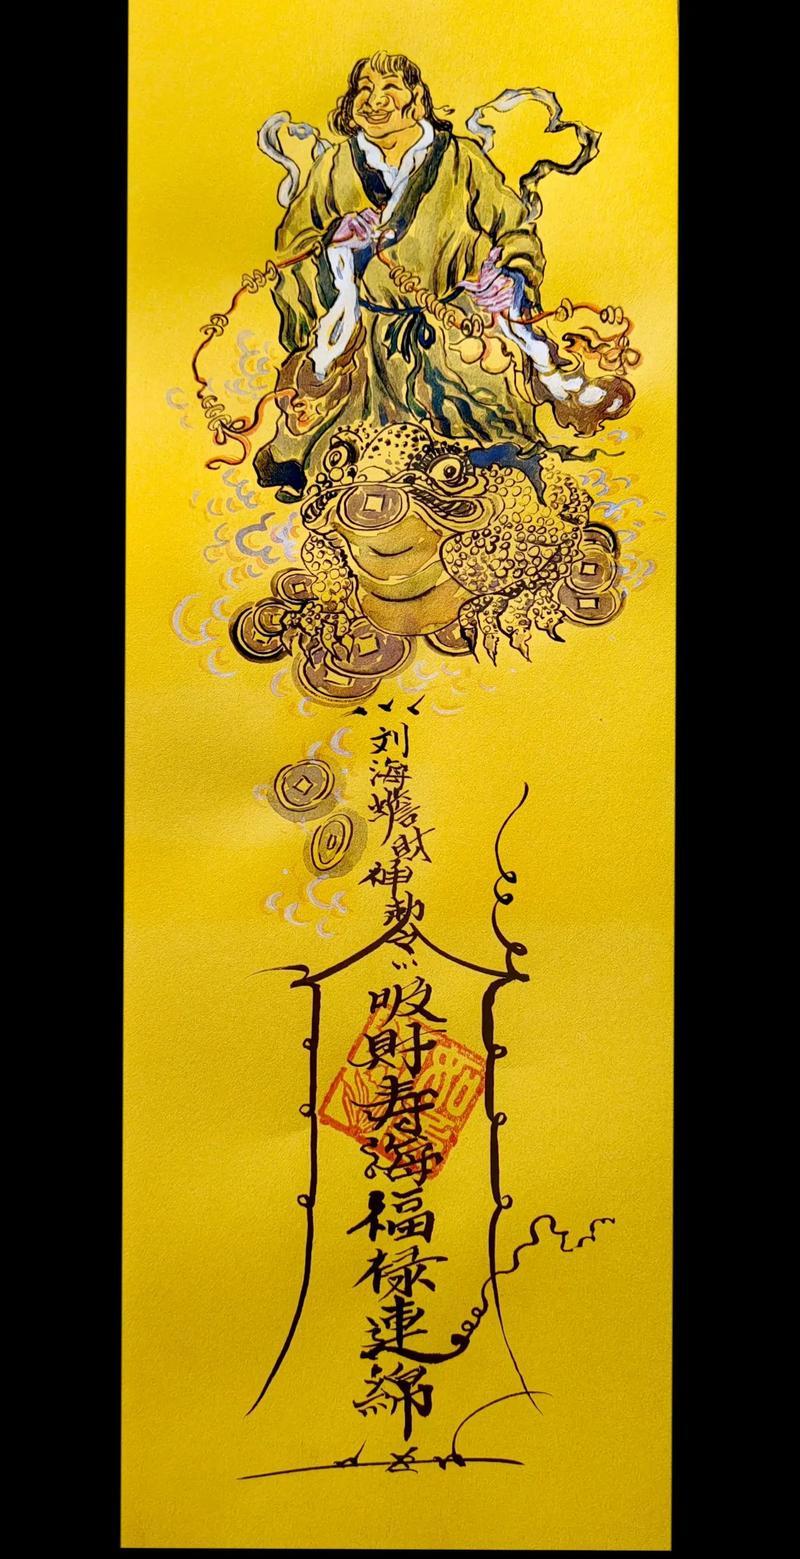 刘海蟾財神勅令
吸財寿海福禄連綿